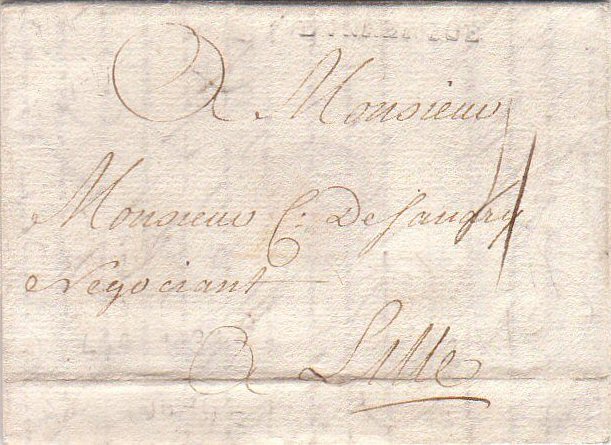 A Monsieur
Monsieur C: Desandry
Negociant
A Lille